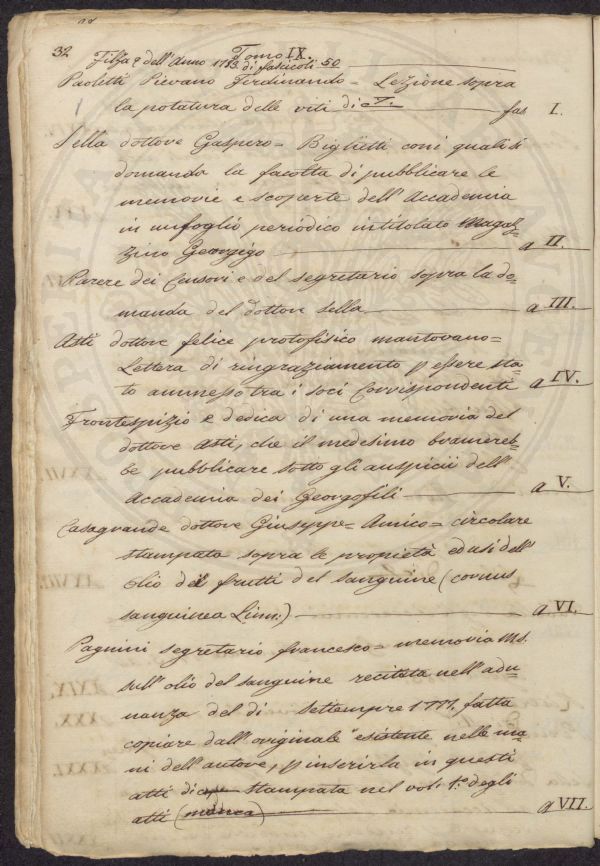 32
Tomo IX.
Filza 9 dell'Anno 1783 di fascicoli 50
Paoletti Pievano Ferdinando = Lezione sopra
la potatura delle viti di c. T. fas I.
Sella dottore Gaspero = Biglietti con i quali si
domanda la facoltà di pubblicare le
memorie e scoperte dell'Accademia
in un foglio periodico intitolato Magaz=
zino Georgico a II.
Parere dei Censori e del segretario sopra la do=
manda del dottore Sella a III.
Asti dottore felice protofisico mantovano =
Lettera di ringraziamento p essere sta=
to ammesso tra i soci Corrispondenti a IV.
Frontespizio e dedica di una memoria del
dottore Asti, che il medesimo bramereb=
be pubblicare sotto gli auspicii dell'
Accademia dei Georgofili a V.
Casagrande dottore Giuseppe = Amico = circolare
stampata sopra le proprietà ed usi dell'
olio dei frutti del sanguine (cornus
sanguinea Linn:) a VI.
Pagnini segretario francesco = memoria ms.
sull'olio del sanguine recitata nell'adu=
nanza del di settempre 1777. fatta
copiare dall'originale esistente nelle ma=
ni dell'autore, p inserirla in questi
atti di stampata nel vol: 1.° degli
atti (manca) a VII.